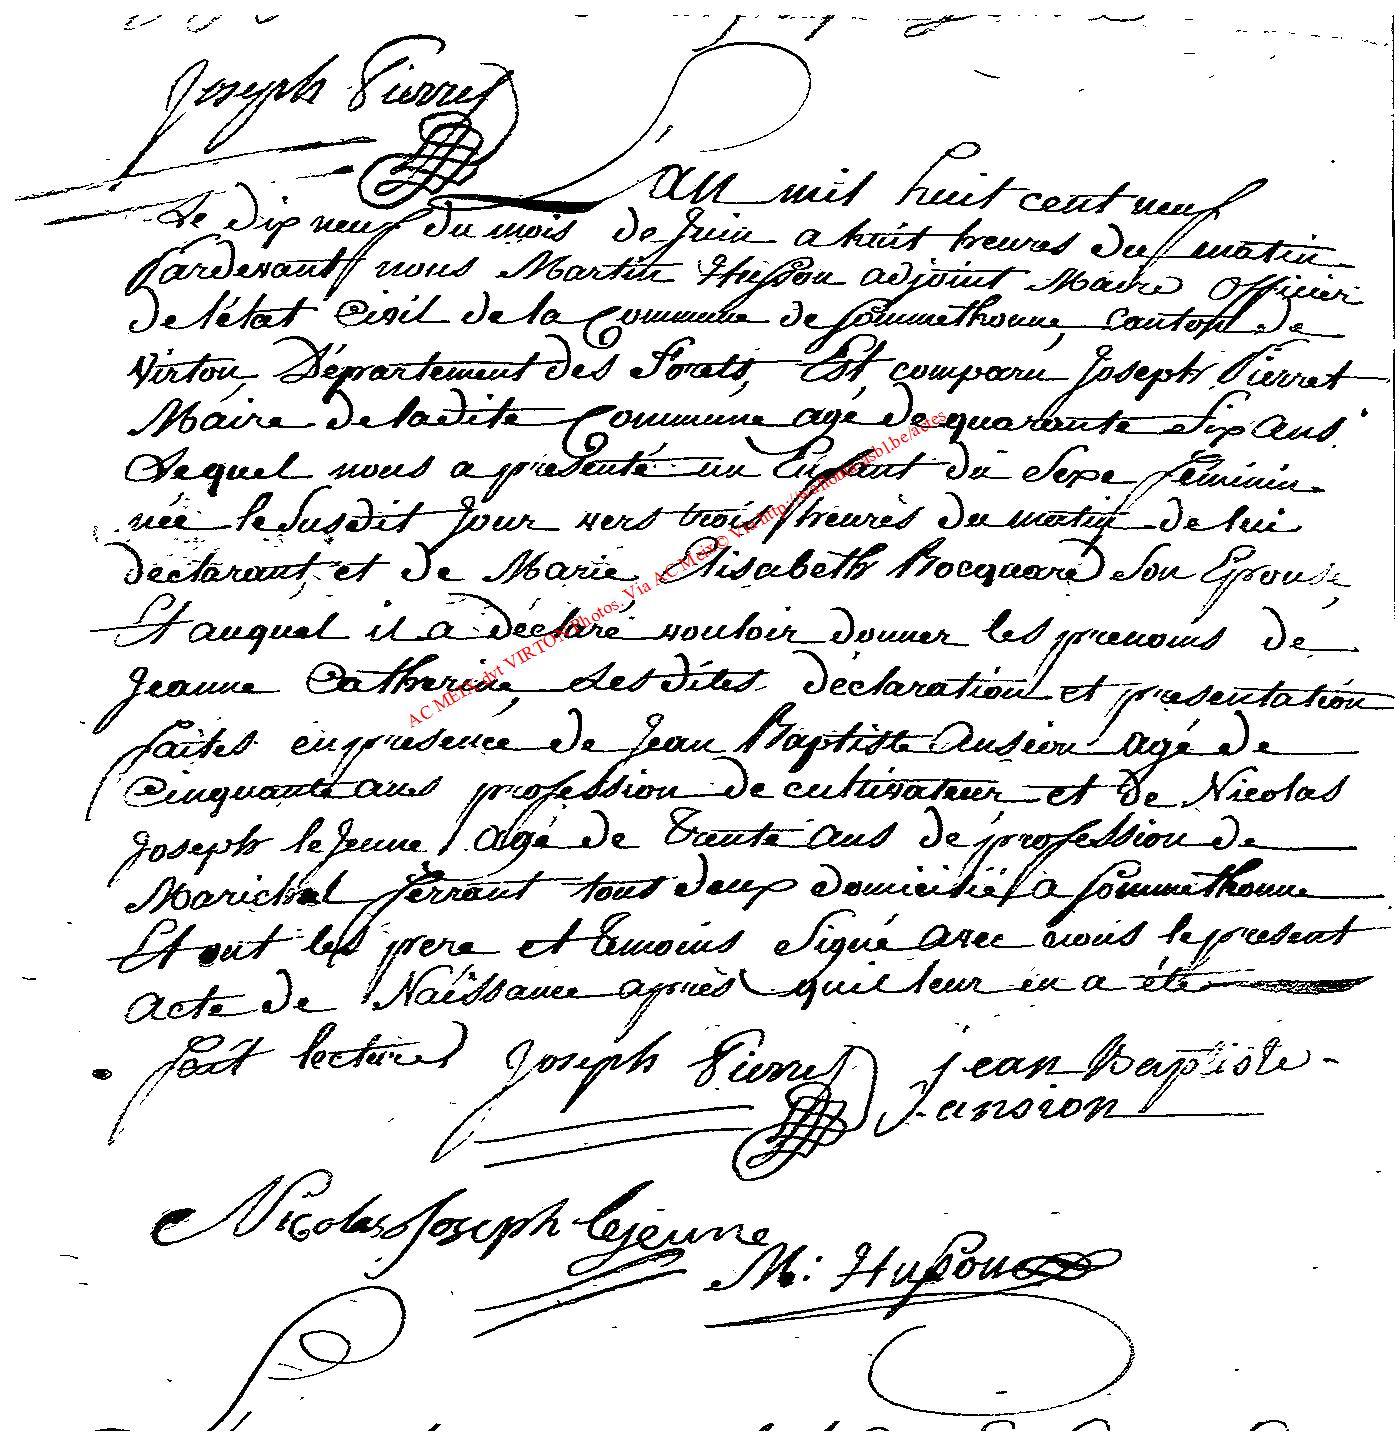 Joseph Pierret
L'an mil huit cent neuf
Le dix neuf du mois de Juin a huit heures du matin
Pardevant nous Martin Husson adjoint Maire Officier
de l'état Civil de la Commune de Sommethonne, canton de
Virton, Département des Forets, Est comparu Joseph Pierret
Maire de ladite Commune agé de quarante Six ans.
Lequel nous a présenté un Enfant du Sexe féminin
née le susdit Jour vers trois heures du matin de lui
déclarant, et de Marie Elisabeth Rocquard Son Epouse,
Et auquel il a déclaré vouloir donner les prenoms de
Jeanne Catherine, Lesdites déclaration et présentation
faites en présence de Jean Baptiste Ansion agé de
Cinquante ans profession de cultivateur et de Nicolas
Joseph le Jeune agé de Trente ans de profession de
Marichal ferrant tous deux domicilié a Sommethonne
Et ont les pere et temoins Signé avec nous le present
acte de Naissance après qu'il leur en a été
fait lecture Joseph Pierret jean Baptiste
ansion
Nicolas Joseph lejeune
M: Husson
AC MEIX-dvt VIRTON Photos. Via AC Meix © Via http://wallonia-asbl.be/actes